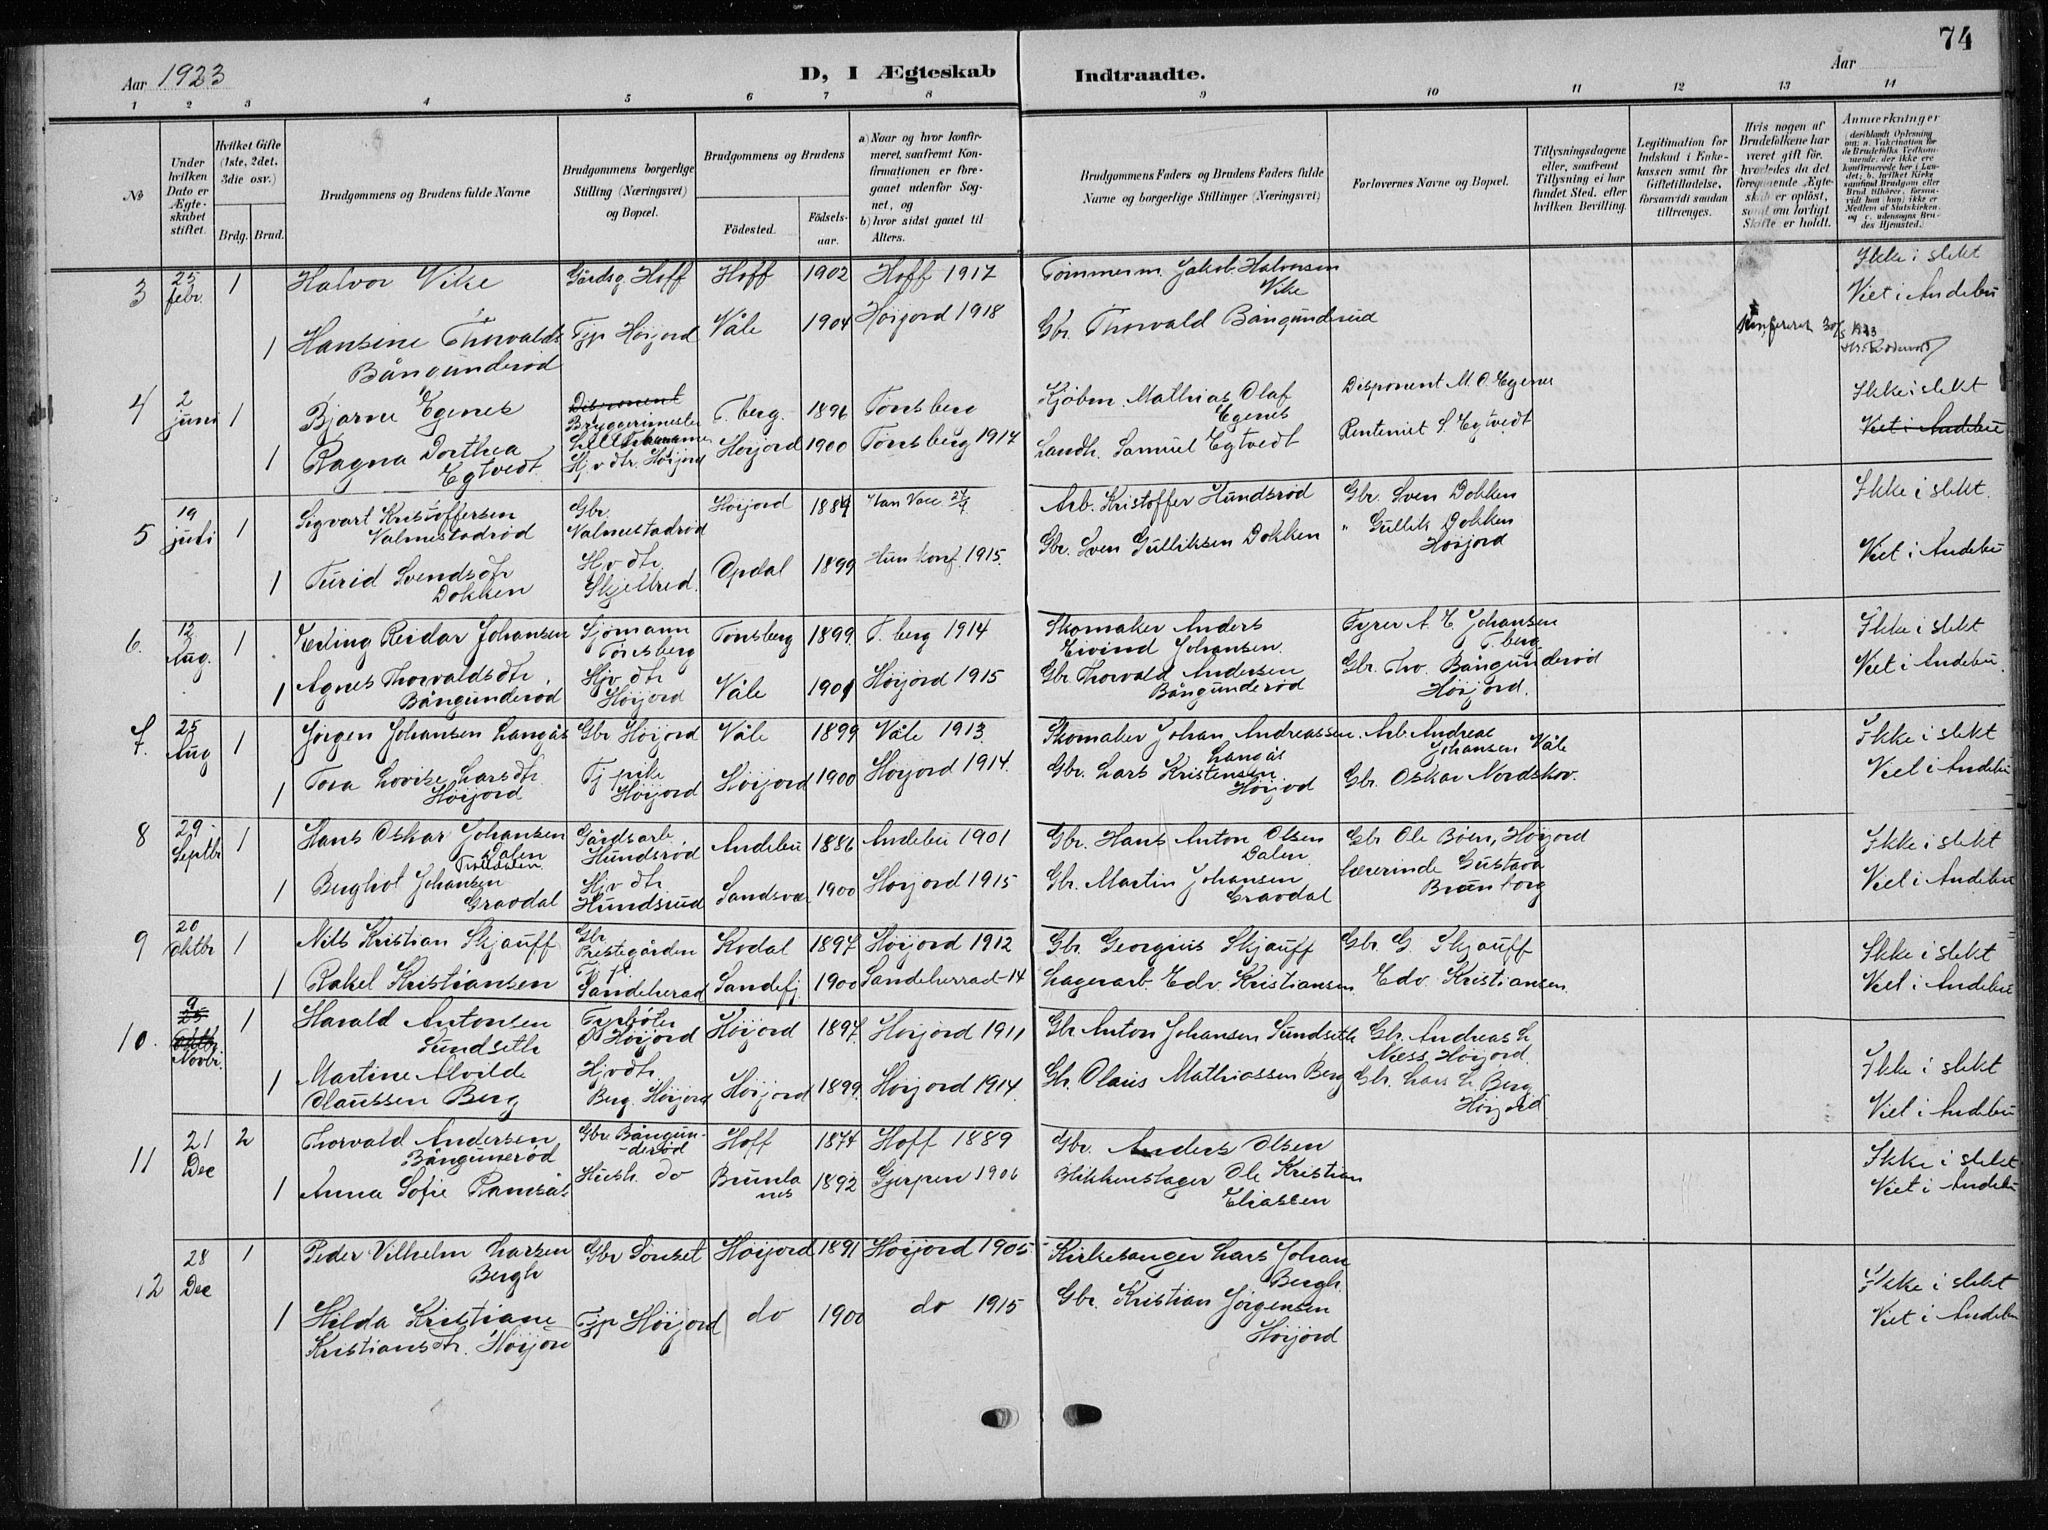 74
Aar 1923
D, I Ægteskab
Indtraadte.
Aar
1 2 3 4 5 6 7 8 9 10 11 12 13 14
№
Under hvilken Dato er Ægteskabet stiftet.
Hvilket Gifte (1ste, 2det, 3die osv.)
Brdg. Brud.
Brudgommens og Brudens fulde Navne
Brudgommens borgerlige Stilling (Næringsvei) og Bopæl.
Brudgommens og Brudens
Födested.
Födselsaar.
a) Naar og hvor konfirmeret, saafremt Konfirmationen er foregaaet udenfor Sognet, og
b) hvor sidst gaaet til Alters.
Brudgommens Faders og Brudens Faders fulde Navne og borgerlige Stillinger (Næringsvei)
Forlovernes Navne og Bopæl.
Tillysningsdagene eller, saafremt Tillysning ei har fundet Sted, efter hvilken Bevilling.
Legitimation for Indskud i Enkekassen samt for Giftetilladelse, forsaavidt saadan tiltrænges.
Hvis nogen af Brudefolkene har været gift før, hvorledes da det foregaaende Ægteskab er oplöst, samt om lovligt Skifte er holdt.
Anmærkninger
3 25 febr. 1 Halvor Vike Gårdsg. Hoff Hoff 1902 Hoff 1917 Tømmerm. Jakob Halvorsen Vike Ikke i slekt
Viet i Andebu
1 Hansine Thorvaldsd Bångunderød Tjp Høijord Våle 1904 Høijord 1918 Gbr. Thorvald Bångunderud
4 2 juni 1 Bjarne Egenes Disponent Bryggerimester T.berg. 1896 Tønsberg Kjøbm. Mathias Olaf Egenes Disponent M. O. Egenes Ikke i slekt
1 Ragna Dorthea Egtvedt Hjv dtr. Høijord Høijord 1900 Tønsberg 1914 Landh. Samuel Egtvedt Rentenist S. Egtvedt Viet i Andebu
5 19 juli 1 Sigvart Kristoffersen Valmestadrød Gbr. Valmestadrød Høijord 1889 Han Arb. Kristoffer Hundsrød Gbr. Sven Dokken Ikke i slekt.
1 Turid Svendsdtr Dokken Hjv dtr. Skjellred. Opdal 1899 Hun konf. 1915. Gbr. Sven Gulliksen Dokken " Gullik Dokken Høijord Viet i Andebu
6. 12 Aug. 1 Erling Reidar Johansen Sjømann Tønsberg Tønsberg 1899. T. berg 1914 Skomaker Anders Eivind Johansen Fyrer A. E. Johansen T. berg Ikke i slekt
1 Agnes Thorvaldsdtr. Bångunderød Hjv dtr Høijord Våle 1901 Høijord 1915 Gbr Thorvald Andersen Bångunderød Gbr. Tho. Bångunderød Høijord. Viet i Andebu.
7. 25 Aug 1 Jørgen Johansen Langås Gbr Høijord Våle 1899 Våle 1913 Skomaker Johan Andreassen Langås Arb. Andreas Johansen Våle Ikke i slekt
1 Tora Lovise Larsdtr Høijord Tj pike Høijord Høijord 1900 Høijord 1914. Gbr. Lars Kristensen Høijord Gbr. Oskar Nordskov. Viet i Andebu
8 29 Septbr 1 Hans Oskar Johansen Dalen Gårdsarb. Hundsrød Andebu 1886 Andebu 1901 Gbr. Hans Anton Olsen Dalen Gbr Ole Bøen, Høijord Ikke i slekt
1 Berghot Johansen Gravdal Hjv dtr Hundsrud Sandsvær 1900 Høijord 1915 Gbr. Martin Johansen Gravdal Lærerinde Gustava Brunborg Viet i Andebu
9 20 Oktbr 1 Nils Kristian Skjauff Gbr Prestegården Kodal 1897 Høijord 1912 Gbr Georgius Skjauff Gbr G. Skjauff Ikke i slekt
1 Rakel Kristiansen Tjp Sandeherad Sandefj. 1900 Sandeherrad-14 Lagerarb. Edv. Kristiansen. Edv. Kristiansen. Viet i Andebu
10. 9 25 Oktbr Novbr. 1 Harald Antonsen Sundseth Høijord Høijord 1897. Høijord 1911 Gbr Anton Johansen Sundseth Gbr. Andreas L Næss, Høijord. Ikke i slekt
1 Martine Alvilde Olaussen Berg Hjv dtr. Berg. Høijord Høijord 1899. Høijord 1914. Gbr. Olaus Mathiassen Berg Gbr. Lars L. Berg Høijord Viet i Andebu
11 21 Dec 2 Thorvald Andersen Bångunerød Gbr Bångunderød Hoff 1874 Hoff 1889 Gbr. Anders Olsen Ikke i slekt
1 Anna Sofie Ramsås Hush. do Brunlanes 1892 Gjerpen 1906 Blikkenslager Ole Kristian Eliassen Viet i Andebu
12 28 Dec 1 Peder Vilhelm Larsen Bergh Gbr Sonset Høijord 1891 Høijord 1905 Kirkesanger Lars Johan Bergh. Ikke i slekt
1 Hilda Kristiane Kristiansdtr. Høijord Tjp Høijord do 1900 do 1915 Gbr. Kristian Jørgensen Høijord Viet i Andebu